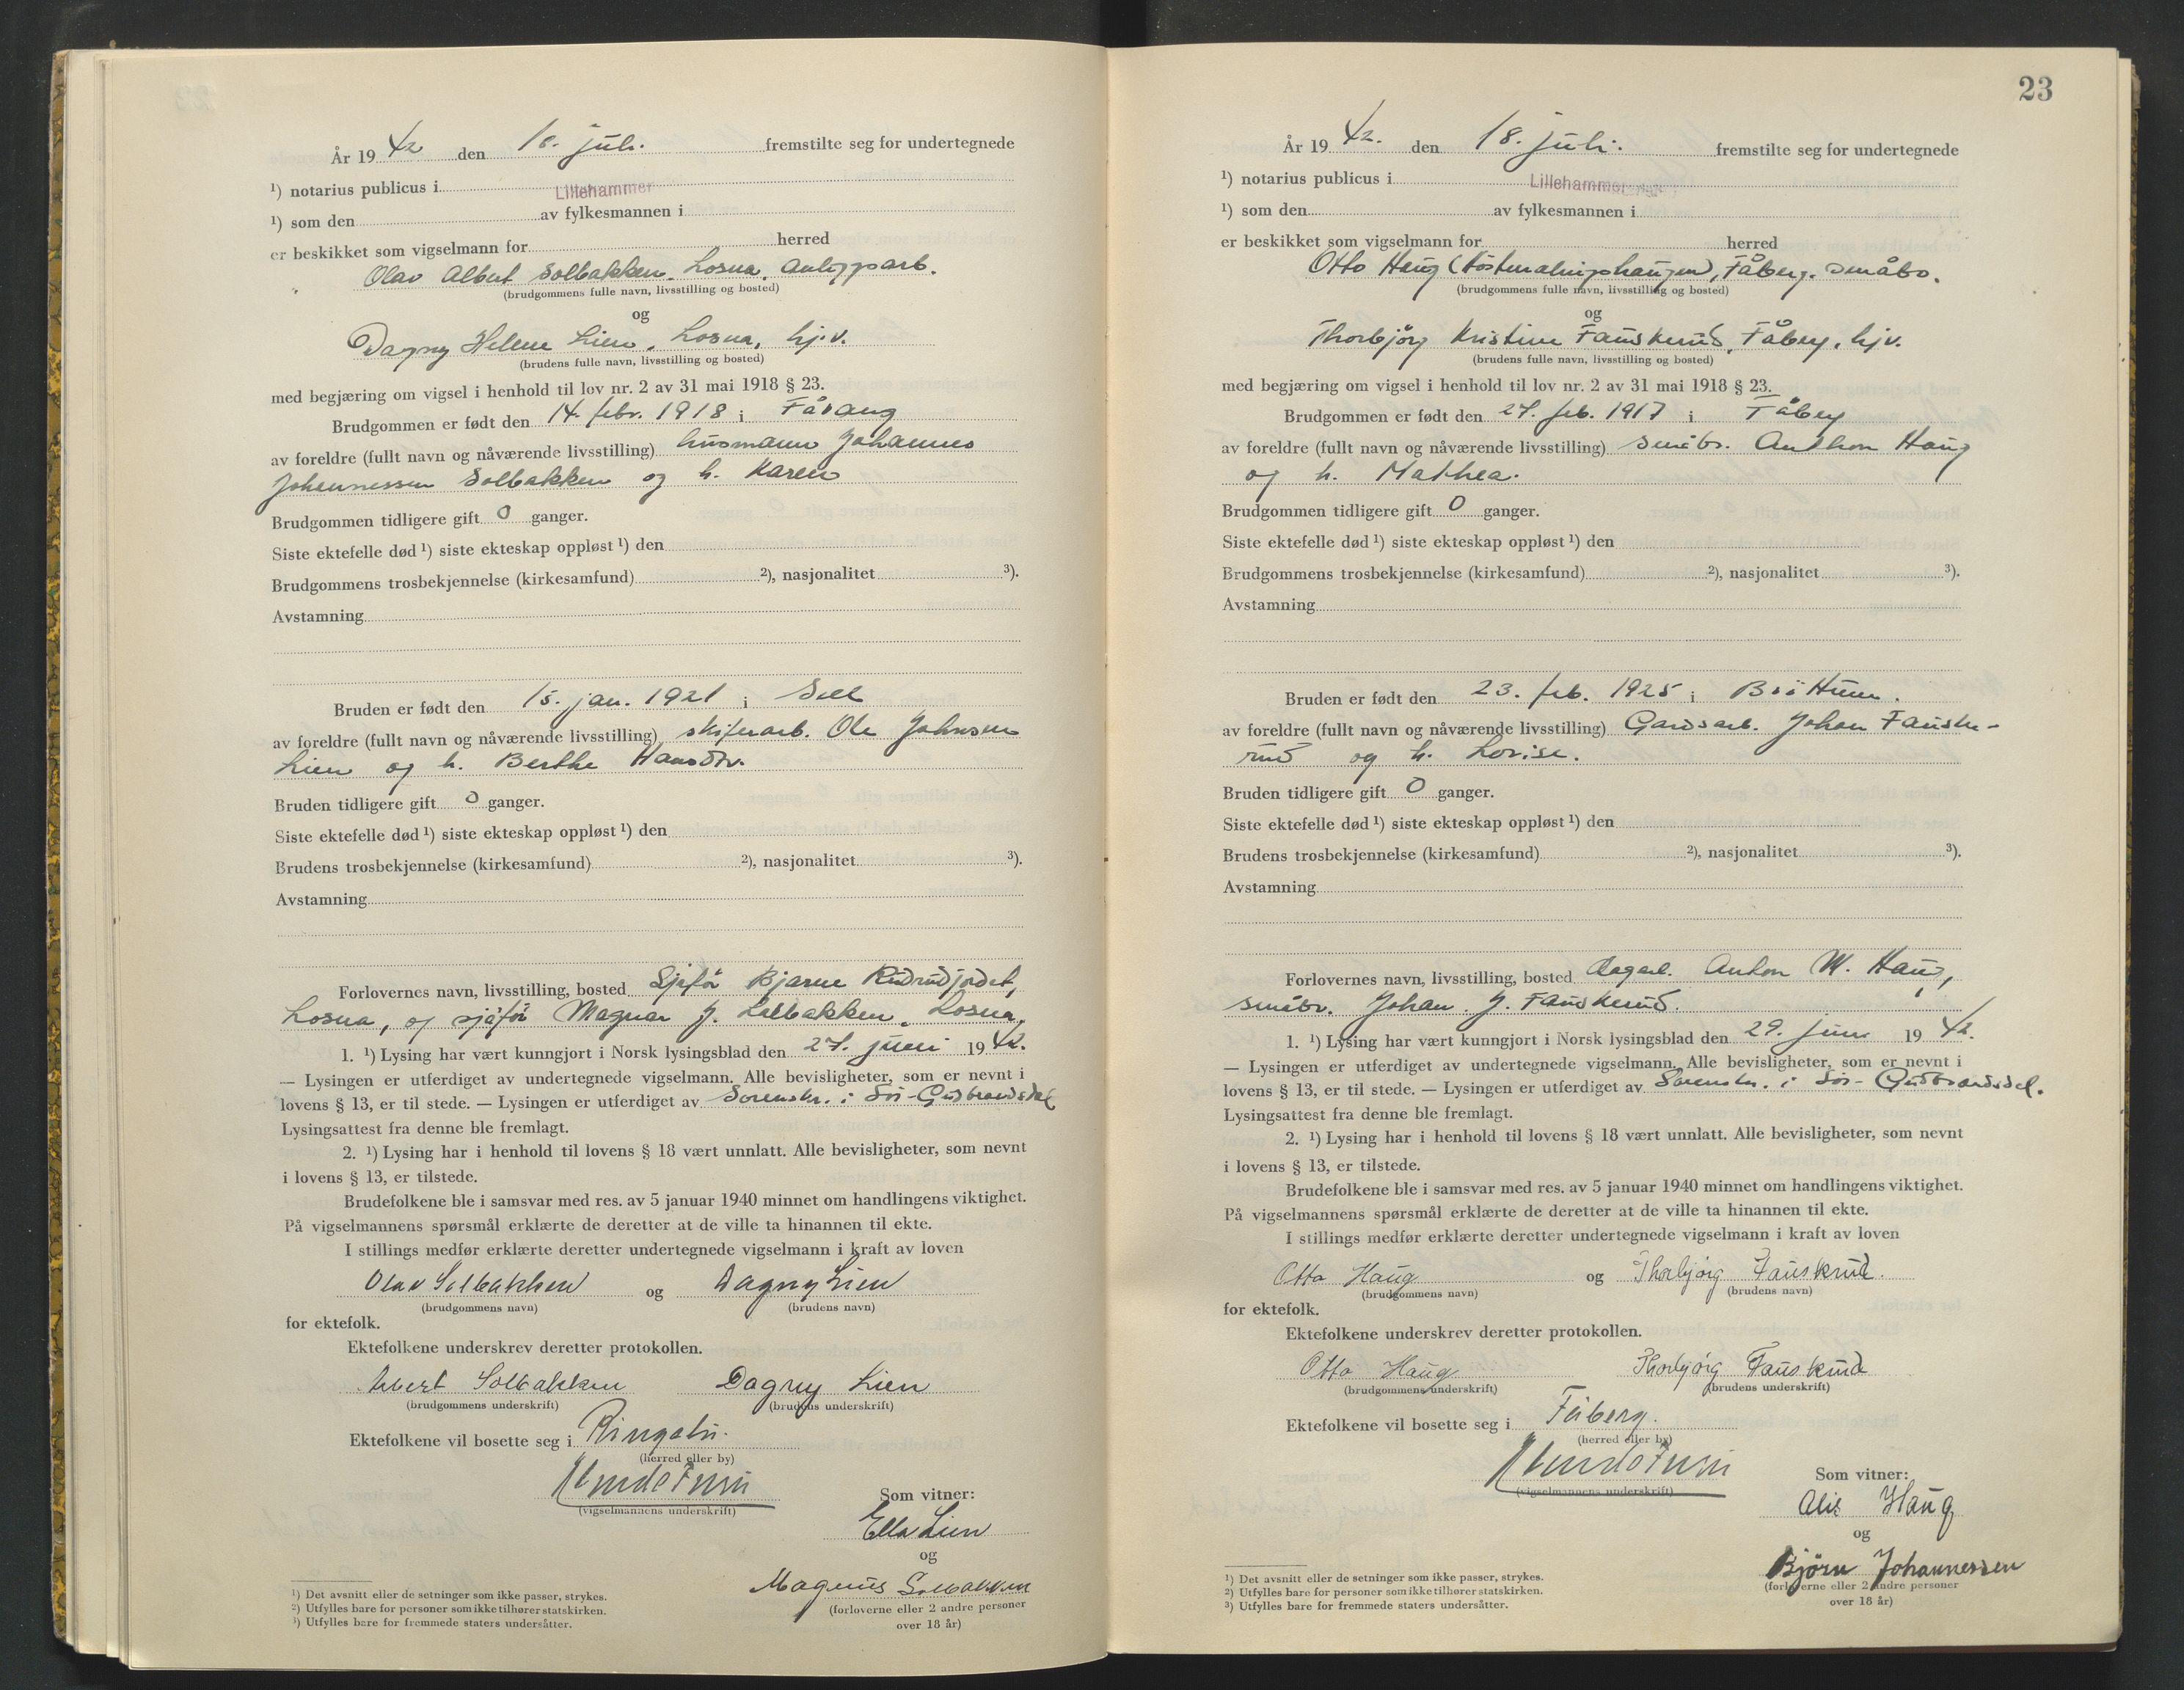 År 1942 den 18. juli. fremstilte seg for undertegnede
¹) notarius publicus i Lillehammer
¹) som den av fylkesmannen i
er beskikket som vigselmann for herred
Olav Albert Solbakken, Losna, anleggsarb.
(brudgommens fulle navn, livsstilling og bosted)
og
Dagny Helene Lien, Losna, hj.v.
(brudens fulle navn, livsstilling og bosted)
med begjæring om vigsel i henhold til lov nr. 2 av 31 mai 1918 § 23.
Brudgommen er født den 14. febr. 1918 i Fåvang
av foreldre (fullt navn og nåværende livsstilling) husmann Johannes
Johannessen Solbakken og h. Karen
Brudgommen tidligere gift 0 ganger.
Siste ektefelle død ¹) siste ekteskap oppløst ¹) den
Brudgommens trosbekjennelse (kirkesamfund) ²), nasjonalitet ³).
Avstamning
Bruden er født den 15. jan. 1921 i Sell
av foreldre (fullt navn og nåværende livsstilling) skiferarb. Ole Johnsen
Lien og h. Berthe Hansdtr.
Bruden tidligere gift 0 ganger.
Siste ektefelle død ¹) siste ekteskap oppløst ¹) den
Brudens trosbekjennelse (kirkesamfund) ²), nasjonalitet ³).
Avstamning
Forlovernes navn, livsstilling, bosted Sjåfør Bjarne Rudrudjordet,
Losna, og sjåfør Magnar J. Solbakken, Losna.
1. ¹) Lysing har vært kunngjort i Norsk lysingsblad den 27. juni 1942.
— Lysingen er utferdiget av undertegnede vigselmann. Alle bevisligheter, som er nevnt i
lovens § 13, er til stede. — Lysingen er utferdiget av Sorenskr. i Sør-Gudbrandsdal
Lysingsattest fra denne ble fremlagt.
2. ¹) Lysing har i henhold til lovens § 18 vært unnlatt. Alle bevisligheter, som nevnt
i lovens § 13, er tilstede.
Brudefolkene ble i samsvar med res. av 5 januar 1940 minnet om handlingens viktighet.
På vigselmannens spørsmål erklærte de deretter at de ville ta hinannen til ekte.
I stillings medfør erklærte deretter undertegnede vigselmann i kraft av loven
Olav Solbakken og Dagny Lien
(brudgommens navn) (brudens navn)
for ektefolk.
Ektefolkene underskrev deretter protokollen.
Albert Solbakken Dagny Lien
(brudgommens underskrift) (brudens underskrift)
Ektefolkene vil bosette seg i Ringebu.
(herred eller by)
(vigselmannens underskrift)
Som vitner:
Ella Lien
og
Magnus Solbakken
(forloverne eller 2 andre personer
over 18 år)
¹) Det avsnitt eller de setninger som ikke passer, strykes.
²) Utfylles bare for personer som ikke tilhører statskirken.
³) Utfylles bare for fremmede staters undersåtter.
23
År 1942. den 18. juli. fremstilte seg for undertegnede
¹) notarius publicus i Lillehammer
¹) som den av fylkesmannen i
er beskikket som vigselmann for herred
Otto Haug, Fåberg. småbr.
(brudgommens fulle navn, livsstilling og bosted)
og
Thorbjörg Kristine Fauskerud, Fåberg, hj.v.
(brudens fulle navn, livsstilling og bosted)
med begjæring om vigsel i henhold til lov nr. 2 av 31 mai 1918 § 23.
Brudgommen er født den 27. feb. 1917 i Fåberg
av foreldre (fullt navn og nåværende livsstilling) småbr. Anthon Haug
og h. Mathea.
Brudgommen tidligere gift 0 ganger.
Siste ektefelle død ¹) siste ekteskap oppløst ¹) den
Brudgommens trosbekjennelse (kirkesamfund) ²), nasjonalitet ³).
Avstamning
Bruden er født den 23. feb. 1925 i Bröttum.
av foreldre (fullt navn og nåværende livsstilling) Gardsarb. Johan Fauske-
rud og h. Lovise.
Bruden tidligere gift 0 ganger.
Siste ektefelle død ¹) siste ekteskap oppløst ¹) den
Brudens trosbekjennelse (kirkesamfund) ²), nasjonalitet ³).
Avstamning
Forlovernes navn, livsstilling, bosted Anton M. Haug,
småbr. Johan J. Fauskerud.
1. ¹) Lysing har vært kunngjort i Norsk lysingsblad den 29. juni 1942.
— Lysingen er utferdiget av undertegnede vigselmann. Alle bevisligheter, som er nevnt i
lovens § 13, er til stede. — Lysingen er utferdiget av Sorenskr. i Sör-Gudbrandsdal.
Lysingsattest fra denne ble fremlagt.
2. ¹) Lysing har i henhold til lovens § 18 vært unnlatt. Alle bevisligheter, som nevnt
i lovens § 13, er tilstede.
Brudefolkene ble i samsvar med res. av 5 januar 1940 minnet om handlingens viktighet.
På vigselmannens spørsmål erklærte de deretter at de ville ta hinannen til ekte.
I stillings medfør erklærte deretter undertegnede vigselmann i kraft av loven
Otto Haug og Thorbjørg Fauskrud.
(brudgommens navn) (brudens navn)
for ektefolk.
Ektefolkene underskrev deretter protokollen.
Otto Haug Thorbjørg Fauskrud
(brudgommens underskrift) (brudens underskrift)
Ektefolkene vil bosette seg i Fåberg.
(herred eller by)
(vigselmannens underskrift)
Som vitner:
Alis Haug
og
Björn Johannessen
(forloverne eller 2 andre personer
over 18 år)
¹) Det avsnitt eller de setninger som ikke passer, strykes.
²) Utfylles bare for personer som ikke tilhører statskirken.
³) Utfylles bare for fremmede staters undersåtter.